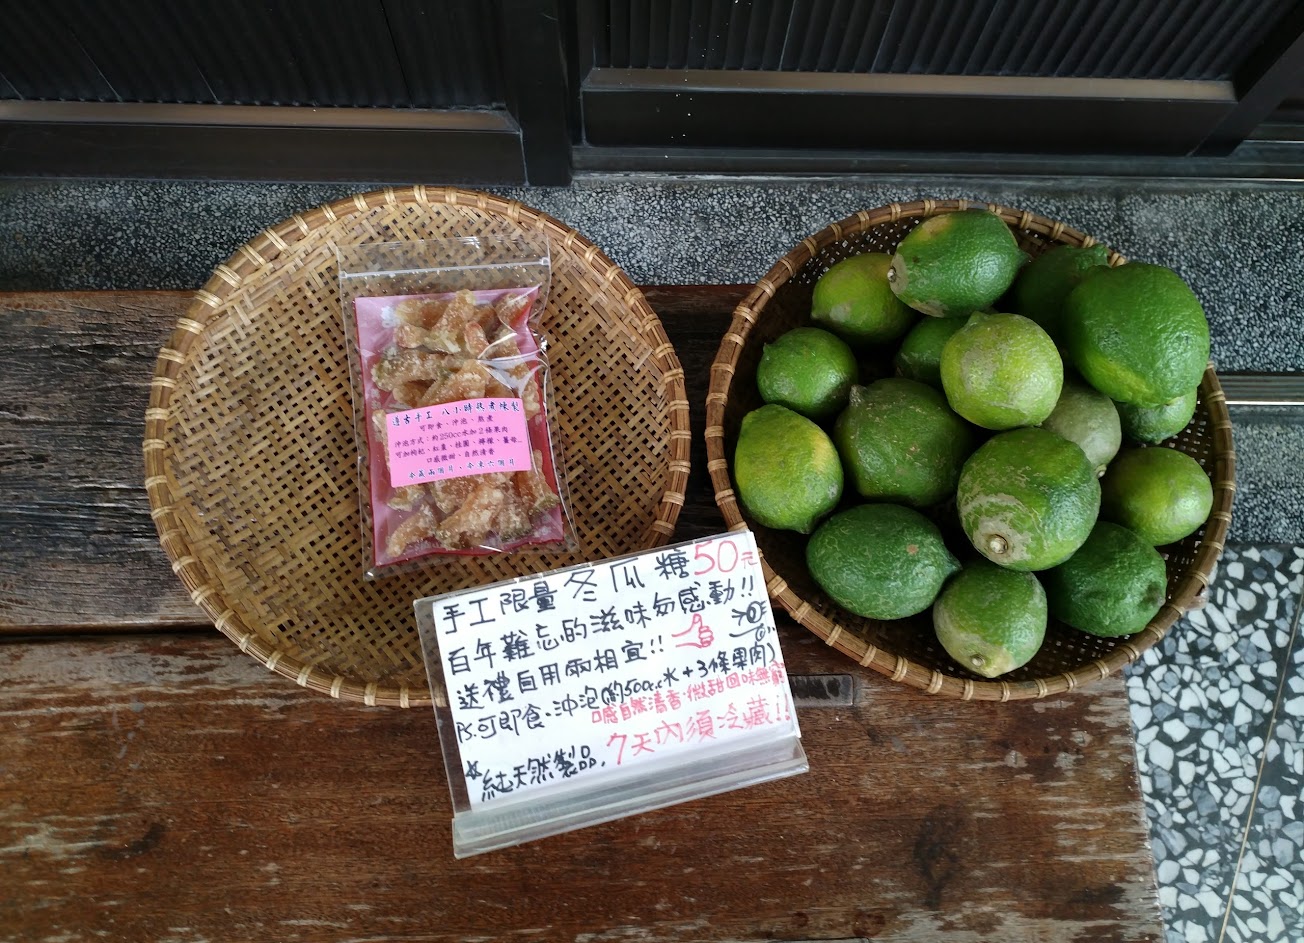 遵古手工 八小時熬煮煉製
可即食、沖泡、熬煮
沖泡方式：約250cc水加2條果肉
可加枸杞、紅棗、桂圓、檸檬、薑母..
口感微甜、自然清香
冷藏兩個月，冷凍六個月
手工限量冬瓜糖50元
百年難忘的滋味勿感動!!
送禮自用兩相宜!!
PS.可即食、沖泡(約500cc水+3條果肉)
口感自然清香、微甜回味無窮
*純天然製品. 7天內須冷藏!!